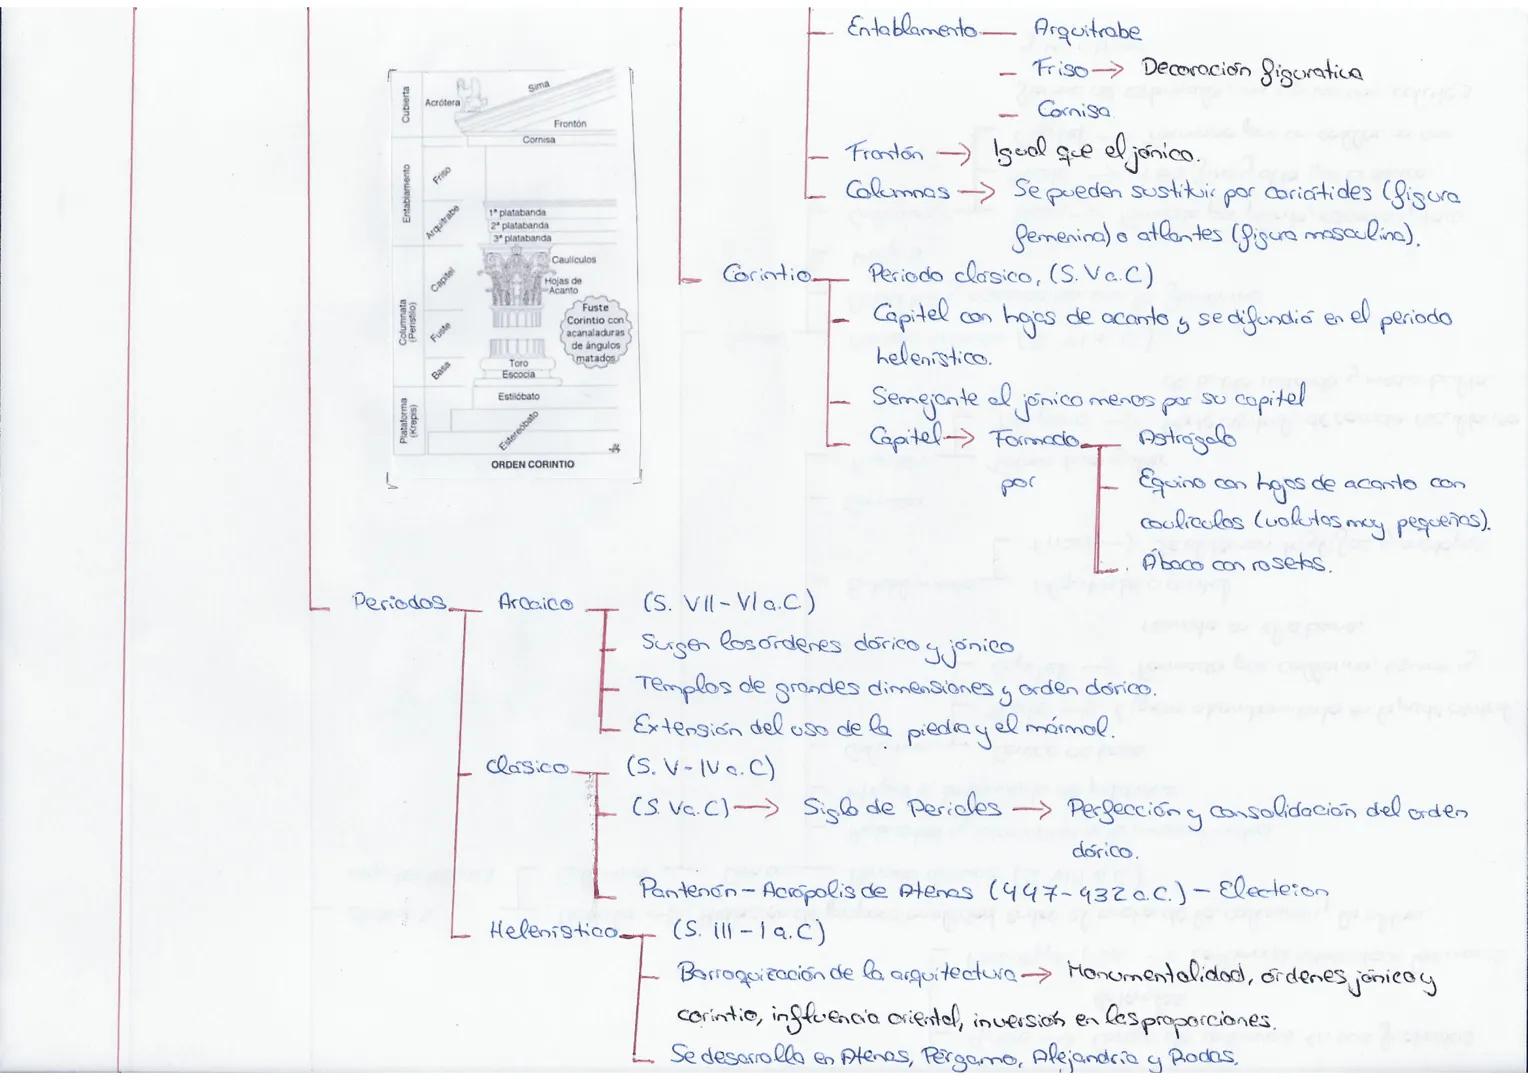 Entablamento — Arquitrabe
— Friso → Decoración figurativa
— Cornisa
Frontón → Igual que el jónico.
Columnas → Se pueden sustituir por cariátides (figura
femenina) o atlantes (figura masculina).
Cubierta
Acrótera
Sima
Frontón
Cornisa
Entablamento
Friso
Arquitrabe
1ª platabanda
2ª platabanda
3ª platabanda
Columnata
(Peristilo)
Capitel
Caulículos
Hojas de
Acanto
Fuste
Fuste
Corintio con
acanaladuras
de ángulos
matados
Basa
Toro
Escocia
Plataforma
(Krepis)
Estilóbato
Estereóbato
ORDEN CORINTIO
Corintio — Periodo clásico, (S. V a.C)
— Capitel con hojas de acanto y se difundió en el periodo
helenístico.
— Semejante al jónico menos por su capitel
— Capitel → Formado por — Astrágalo
— Equino con hojas de acanto con
caulículos (volutas muy pequeñas).
— Ábaco con rosetas.
Periodos — Arcaico — (S. VII - VI a.C)
— Surgen los órdenes dórico y jónico
— Templos de grandes dimensiones y orden dórico.
— Extensión del uso de la piedra y el mármol.
— Clásico — (S. V - IV a.C)
— (S. V a.C) → Siglo de Pericles → Perfección y consolidación del orden
dórico.
— Partenón - Acrópolis de Atenas (447-432 a.C.) - Electeion
— Helenístico — (S. III - I a.C)
— Barroquización de la arquitectura → Monumentalidad, órdenes jónico y
corintio, influencia oriental, inversión en las proporciones.
— Se desarrolla en Atenas, Pérgamo, Alejandría y Rodas.